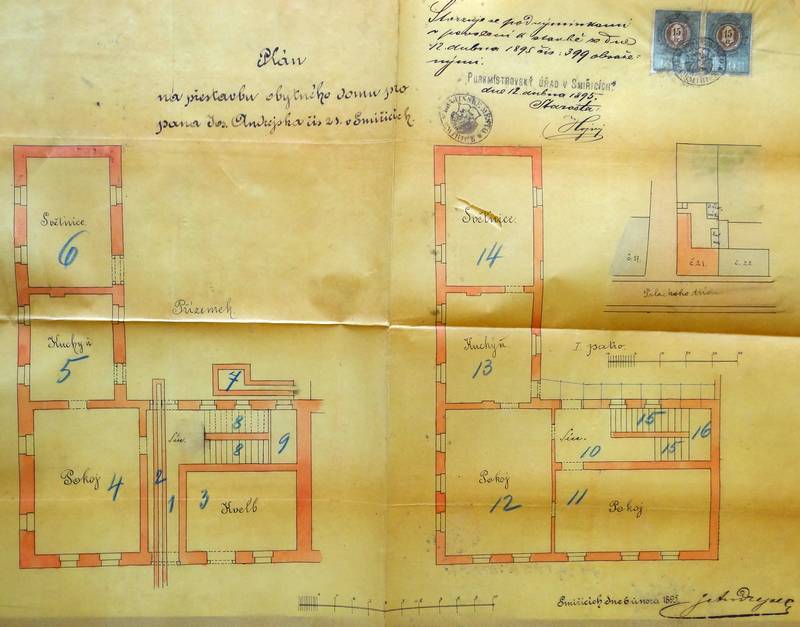 Plán
na přestavbu obytného domu pro
pana Jos. Andrejska čís 21. v Smiřicích.
Stvrzuje se pod výminkami
v povolení k stavbě ze dne
12. dubna 1895 čís: 399 obsaže-
nými.
PURKMISTROVSKÝ ÚŘAD V SMIŘICÍCH
dne 12. dubna 1895.
Starosta:
15
15
Světnice.
6
Kuchyň
5
Přízemek.
Pokoj
4
2
1
Síň.
7
8
8
9
3
Kvelb
Světnice.
14
Kuchyň.
13
I. patro.
Síň.
10
15
15
16
Pokoj
12
11
Pokoj
č. 21.
č. 22.
Palackého třída
Smiřicích dne 6. února 1895